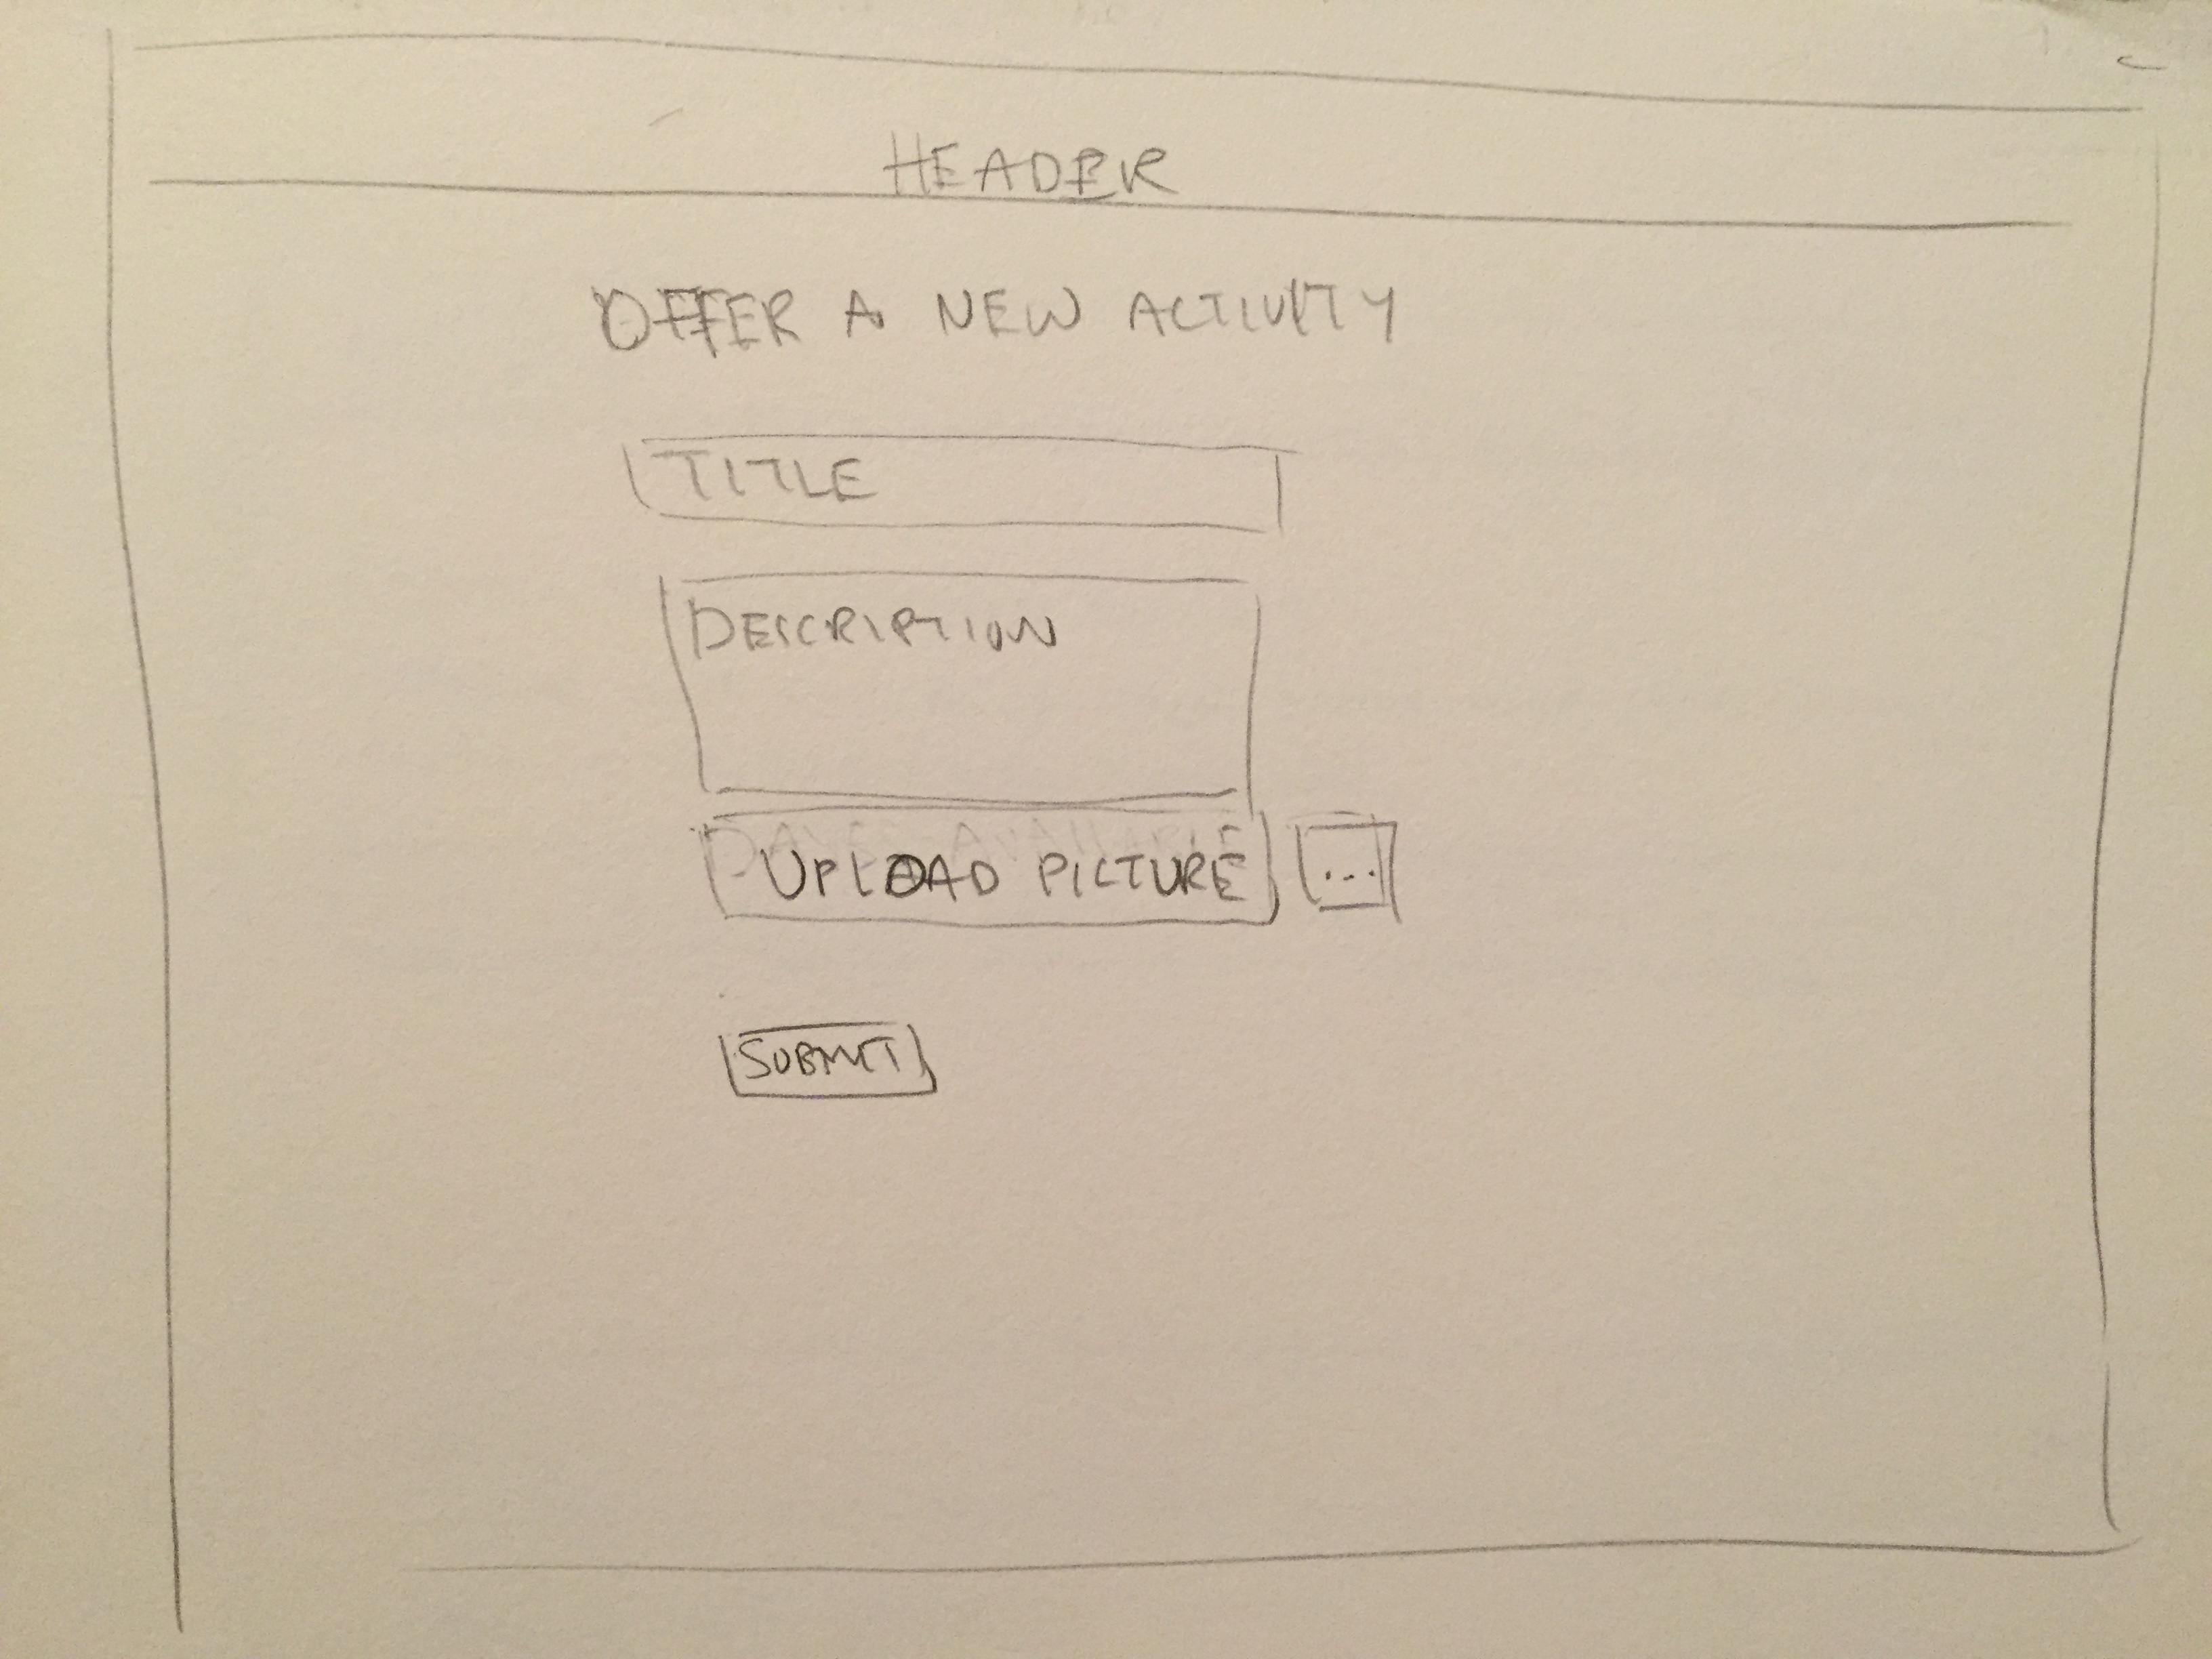 HEADER
OFFER A NEW ACTIVITY
TITLE
DESCRIPTION
UPLOAD PICTURE ...
SUBMIT